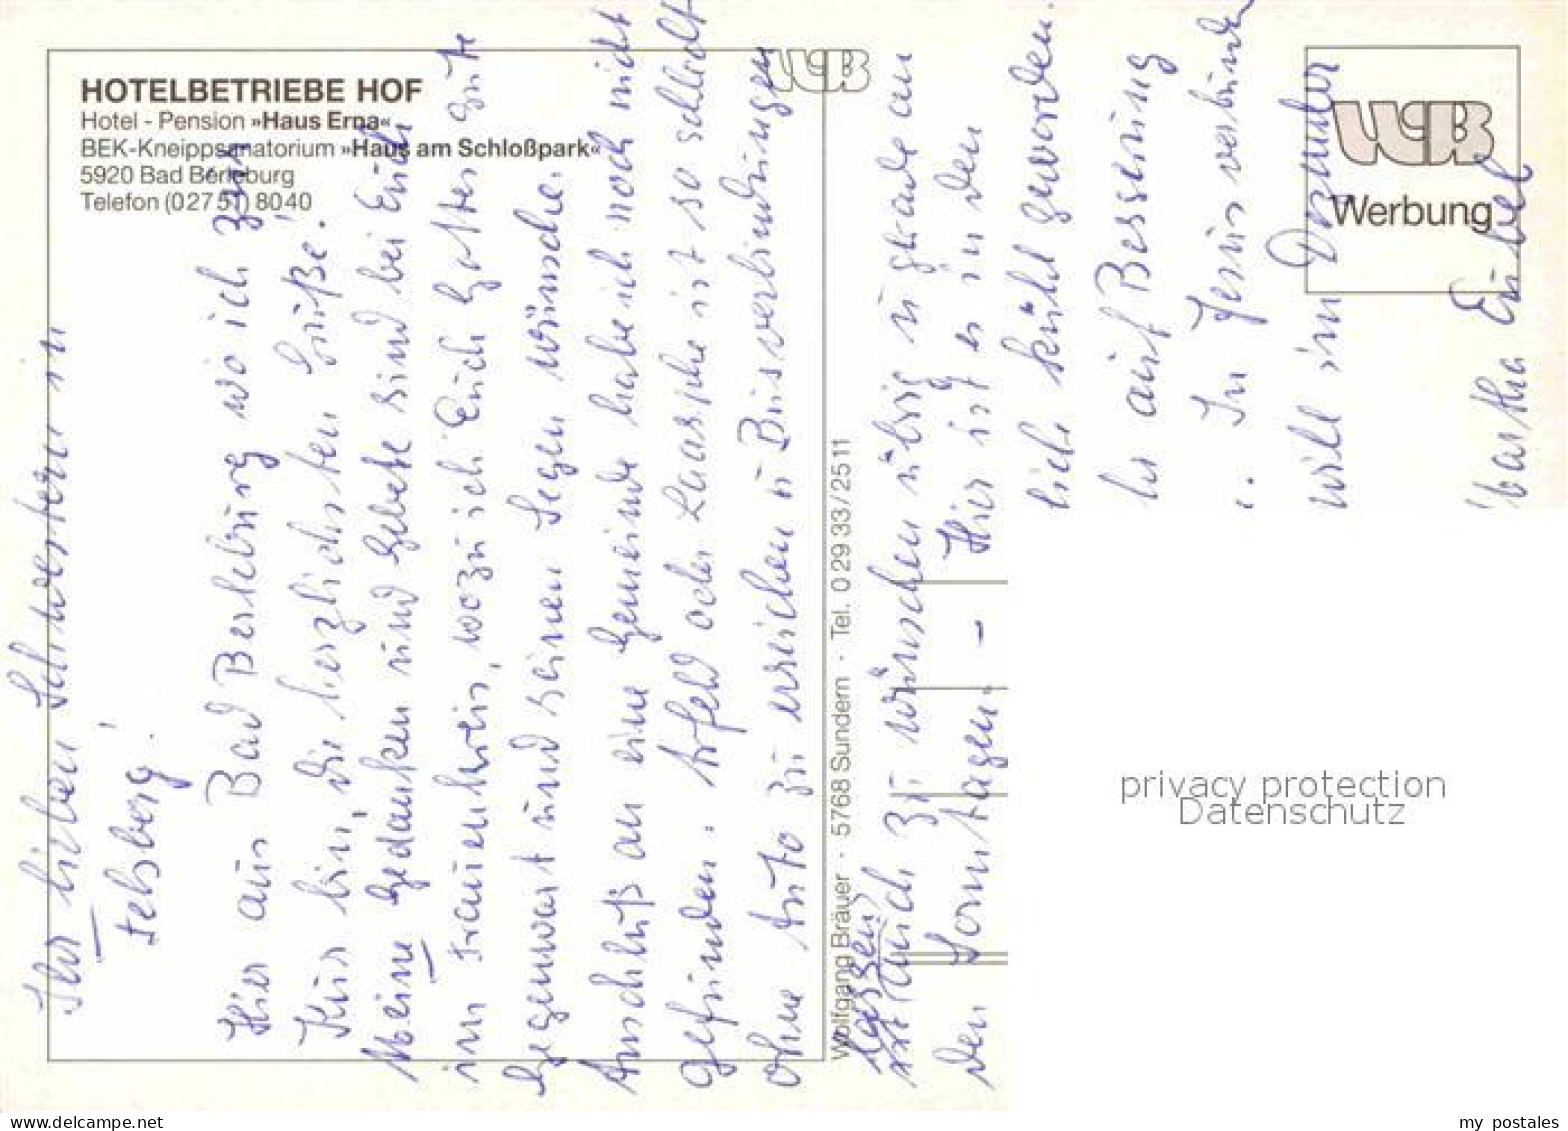 HOTELBETRIEBE HOF
Hotel - Pension »Haus Erna«
BEK-Kneippsanatorium »Haus am Schloßpark«
5920 Bad Berleburg
Telefon (02751) 8040
WB
WB
Werbung
Ihr lieben Schwestern in
Felsberg!
Hier aus Bad Berleburg wo ich zur
Kur bin, die herzlichsten Grüße.
Meine Gedanken und Gebete sind bei Euch
im Frauenkreis, wozu ich Euch Gottes gute
Gegenwart und seinen Segen wünsche.
Anschluß an eine Gemeinde habe ich noch nicht
gefunden. Arfeld oder Laasphe ist so schlecht
ohne Auto zu erreichen u Busverbindungen
lassen
auch zu wünschen übrig u grade an
den Sonntagen. – Hier ist es in den
lich kühl geworden.
auf Besserung
. In Jesus verbunden
will im Dezember
Martha Eubel
Wolfgang Bräuer · 5768 Sundern · Tel. 0 29 33 / 25 11
privacy protection
Datenschutz
delcampe.net
my_postales